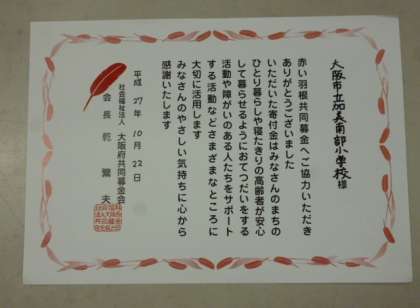 大阪市立加美南部小学校 様
赤い羽根共同募金へご協力いただき
ありがとうございました
いただいた寄付金はみなさんのまちの
ひとり暮らしや寝たきりの高齢者が安心
して暮らせるようにおてつだいをする
活動や障がいのある人たちをサポート
する活動などさまざまなところに
大切に活用します
みなさんのやさしい気持ちに心から
感謝いたします
平成27年10月22日
社会福祉法人 大阪府共同募金会
会長 乾 鷺夫